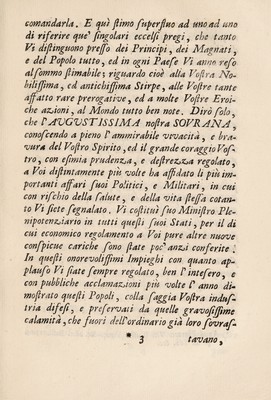 comandarla. E quì ſtimo ſuperfluo ad uno ad uno
di riferire que' ſingolari eccelſi pregj, che tanto
Vi diſtinguono preſſo dei Principi, dei Magnati,
e del Popolo tutto, ed in ogni Paeſe Vi anno reſo
al ſommo ſtimabile; riguardo cioè alla Voſtra No-
biliſſima, ed antichiſſima Stirpe, alle Voſtre tante
affatto rare prerogative, ed a molte Voſtre Eroi-
che azioni, al Mondo tutto ben note. Dirò ſolo,
che l'AUGUSTISSIMA noſtra SOVRANA,
conoſcendo a pieno l'ammirabile vivacità, e bra-
vura del Voſtro Spirito, ed il grande coraggio Voſ-
tro, con eſimia prudenza, e deſtrezza regolato,
a Voi diſtintamente più volte ha affidato li più im-
portanti affari ſuoi Politici, e Militari, in cui
con riſchio della ſalute, e della vita ſteſſa cotan-
to Vi ſiete ſegnalato. Vi coſtituì ſuo Miniſtro Ple-
nipotenziario in tutti queſti ſuoi Stati, per il di
cui economico regolamento a Voi pure altre nuove
conſpicue cariche ſono ſtate poc'anzi conferite.
In queſti onorevoliſſimi Impieghi con quanto ap-
plauſo Vi ſiate ſempre regolato, ben l'inteſero, e
con pubbliche acclamazioni più volte l'anno di-
moſtrato queſti Popoli, colla ſaggia Voſtra induſ-
tria difeſi, e preſervati da quelle gravoſiſſime
calamità, che fuori dell'ordinario già loro ſovraſ-
* 3 tavano,